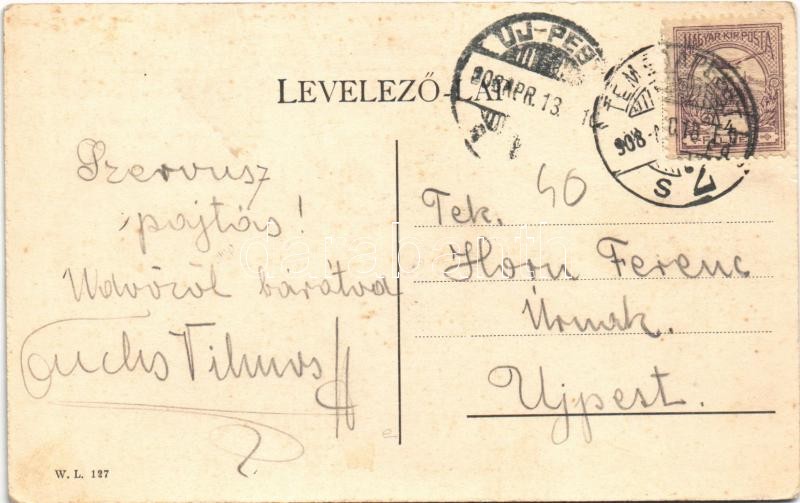 LEVELEZŐ-LAP
UJ-PEST
908 APR. 13.
MAGYAR KIR. POSTA
908
7
S
40
Szervusz
pajtás!
Üdvözöl barátod
Fuchs Vilmos
Tek.
Horn Ferenc
Úrnak.
Ujpest.
W. L. 127